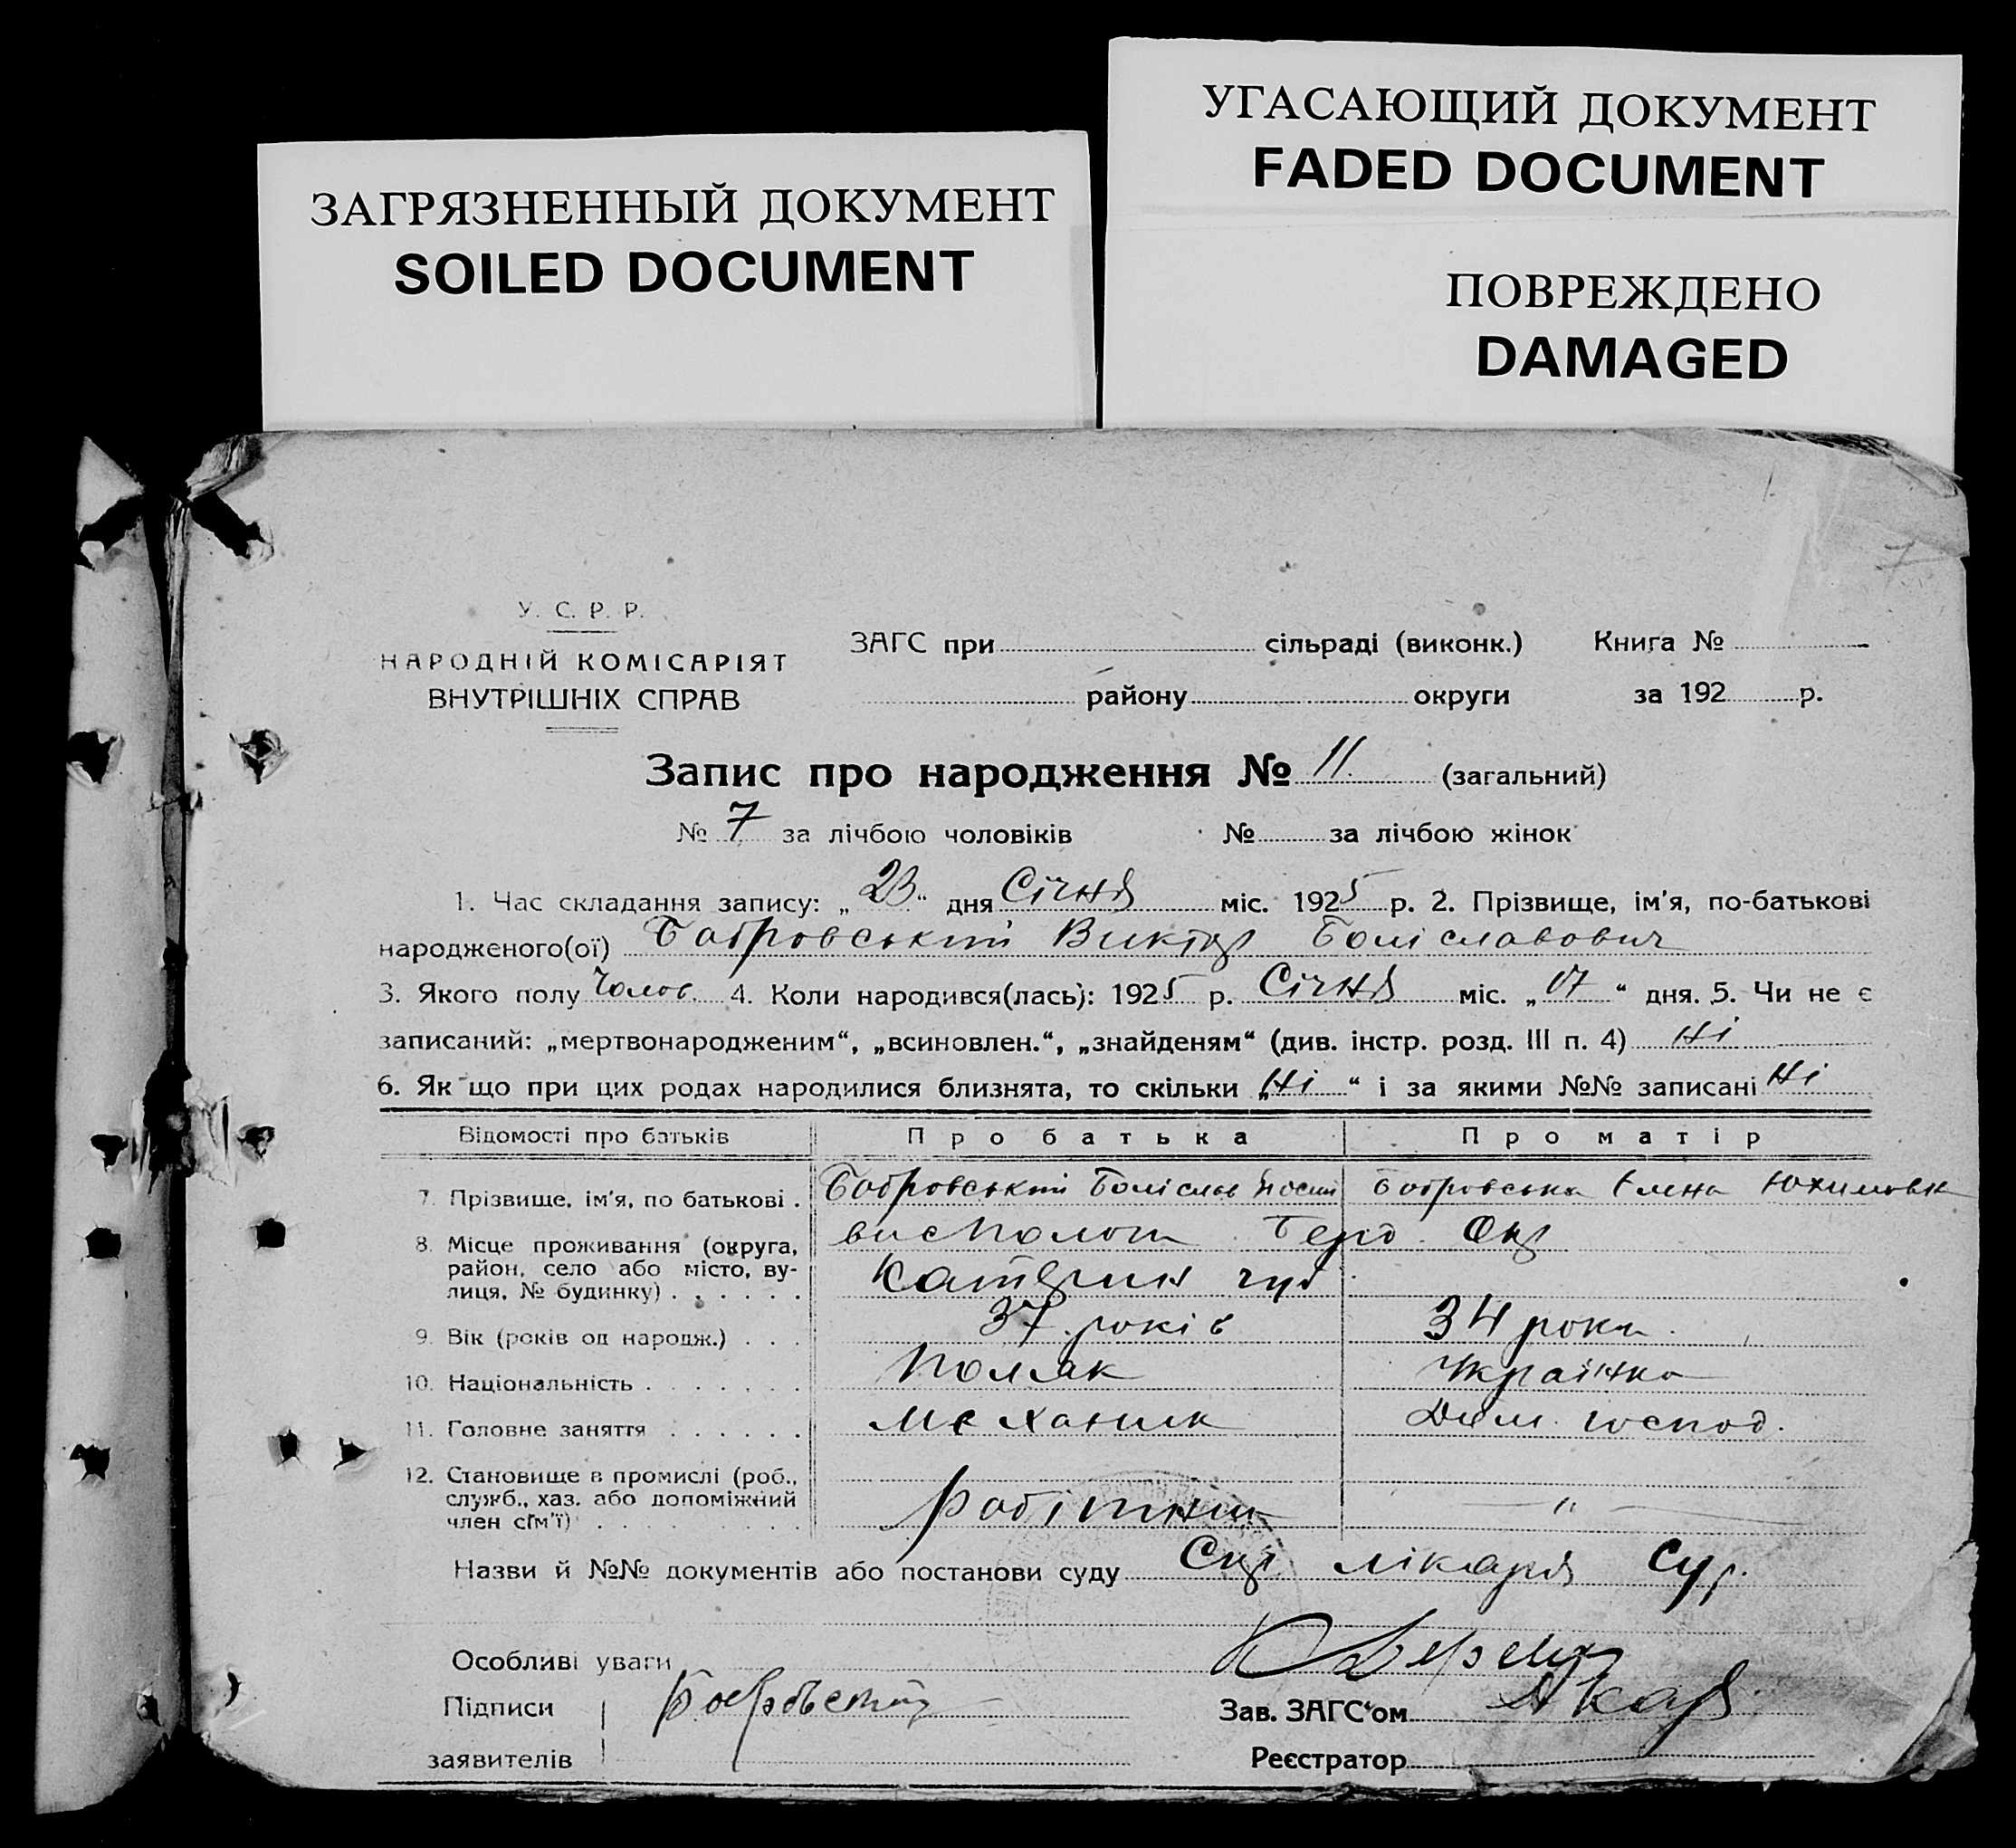 УГАСАЮЩИЙ ДОКУМЕНТ
FADED DOCUMENT
ЗАГРЯЗНЕННЫЙ ДОКУМЕНТ
SOILED DOCUMENT
ПОВРЕЖДЕНО
DAMAGED
7
У. С. Р. Р.
НАРОДНІЙ КОМІСАРІЯТ
ВНУТРІШНІХ СПРАВ
ЗАГС при сільраді (виконк.) Книга №
району округи за 192 р.
Запис про народження № 11. (загальний)
№ 7 за лічбою чоловіків № за лічбою жінок
1. Час складання запису: „23“ дня Січня міс. 1925 р. 2. Прізвище, ім'я, по-батькові
народженого(ої) Бобровський Виктор Болiславович
3. Якого полу Чолов. 4. Коли народився(лась): 1925 р. Січня міс. „17“ дня. 5. Чи не є
записаний: „мертвонародженим“, „всиновлен.“, „знайденям“ (див. інстр. розд. III п. 4) Ні
6. Як що при цих родах народилися близнята, то скільки „Ні“ і за якими №№ записані Ні
Відомості про батьків Про батька Про матір
7. Прізвище, ім'я, по батькові . Бобровський Болiслав Бобровська Елена Юхимовна
8. Місце проживання (округа,
район, село або місто, ву-
лиця, № будинку) . . . . . .
9. Вік (років од народж.) . . . 37 років 34 роки.
10. Національність . . . . . . Поляк Українка
11. Головне заняття . . . . . . Механик Дом. господ.
12. Становище в промислі (роб.,
служб., хаз. або допоміжний
член сім'ї) . . . . . . . . Робітник — " —
Назви й №№ документів або постанови суду лікаря
Особливі уваги
Підписи Бобровский Зав. ЗАГС'ом
заявителів Реєстратор